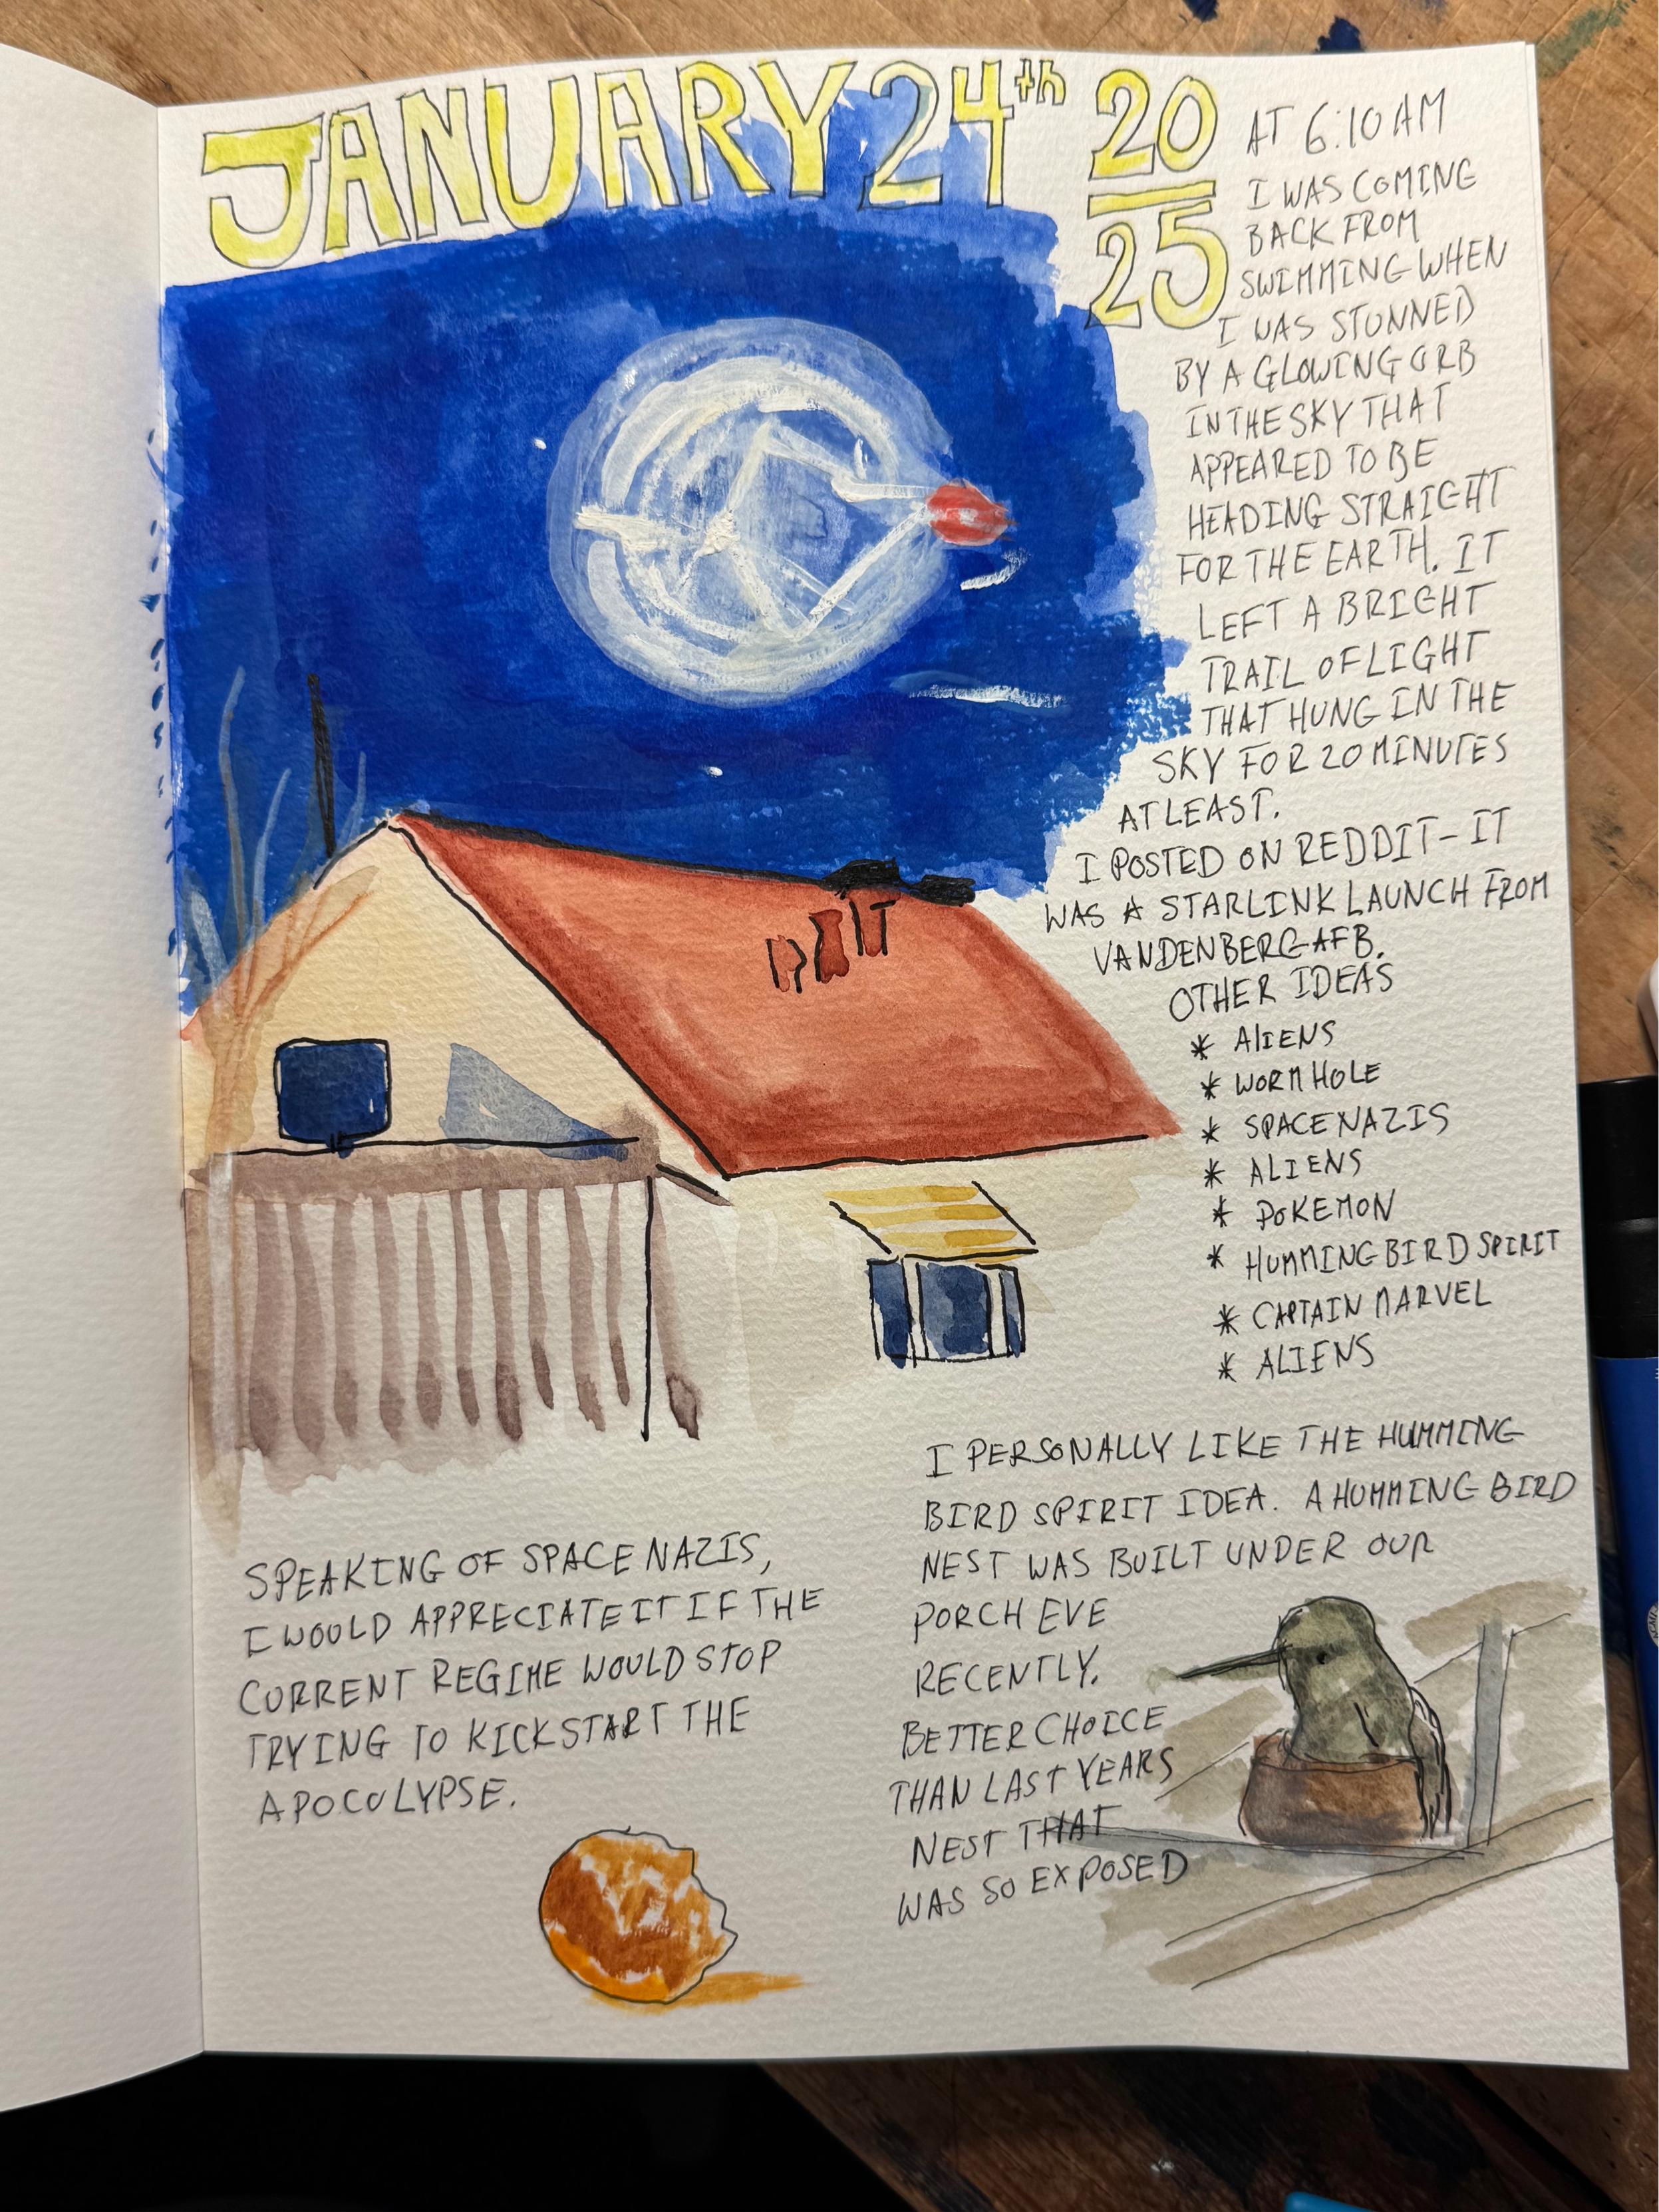 JANUARY 24th 20
25
AT 6:10 AM
I WAS COMING
BACK FROM
SWIMMING WHEN
I WAS STUNNED
BY A GLOWING ORB
IN THE SKY THAT
APPEARED TO BE
HEADING STRAIGHT
FOR THE EARTH. IT
LEFT A BRIGHT
TRAIL OF LIGHT
THAT HUNG IN THE
SKY FOR 20 MINUTES
AT LEAST.
I POSTED ON REDDIT - IT
WAS A STARLINK LAUNCH FROM
VANDENBERG AFB.
OTHER IDEAS
* ALIENS
* WORMHOLE
* SPACE NAZIS
* ALIENS
* POKEMON
* HUMMINGBIRD SPIRIT
* CAPTAIN MARVEL
* ALIENS
I PERSONALLY LIKE THE HUMMING
BIRD SPIRIT IDEA. A HUMMING BIRD
NEST WAS BUILT UNDER OUR
PORCH EVE
RECENTLY.
BETTER CHOICE
THAN LAST YEARS
NEST THAT
WAS SO EXPOSED
SPEAKING OF SPACE NAZIS,
I WOULD APPRECIATE IT IF THE
CURRENT REGIME WOULD STOP
TRYING TO KICKSTART THE
APOCOLYPSE.